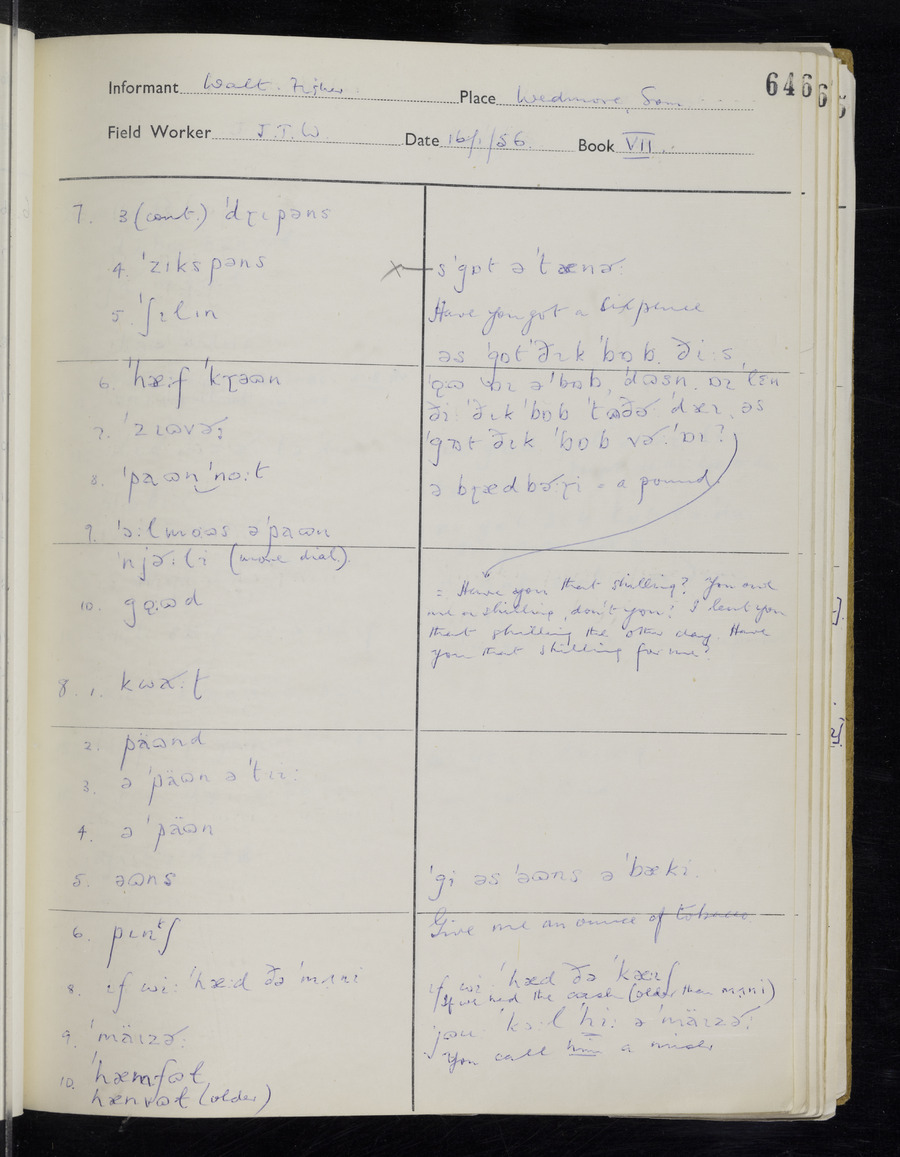 Informant Walt. Fisher Place Wedmore, Som 646
Field Worker J.T.W. Date 16/1/56. Book VII
7. 3 (cont.) ˈdɽɪpəns
4. ˈzɪkspəns
5. ˈʃɪlɪn
6. ˈhæːf ˈkɽəʊn
7. ˈzɪʊvəɽ
8. ˈpaʊn ˈnoːt
9. ˈɔːlmoəs ə ˈpaʊn
ˈnjəːli (more dial.)
10.
8. 1.
2. päʊnd
3. ə ˈpäʊn ə ˈtɪiː
4. ə ˈpäʊn
5. əʊns
6. pɪnᵗʃ
8. ɪf wiː ˈhæːd ðə ˈmɐni
9. ˈmäɪzəɽː
10. ˈhæmfʊt
hænvʊt (older)
× sˈgɒt ə ˈtænəɽː
Have you got a sixpence
əs ˈgɒt ˈðɪk ˈbɒb, ðiːs
ðiː ˈðɪk ˈbɒb ˈtʊðəɽ ˈdæɪ, əs
ˈgɒt ˈðɪk ˈbɒb vəɽː ˈɒɪ?
ə bɽædbəɽːɽi = a pound
= Have you that shilling? You owe
me a shilling, don't you? I lent you
that shilling the other day. Have
you that shilling for me?
ˈgi əs ˈəʊns ə ˈbæki.
Give me an ounce of tobacco
ɪf wiː ˈhæd ðə ˈkæɪʃ
If we had the cash (older than mɐni)
ˈjəʊ ˈkɔːl ˈhiː ə ˈmäɪzəɽː
You call him a miser